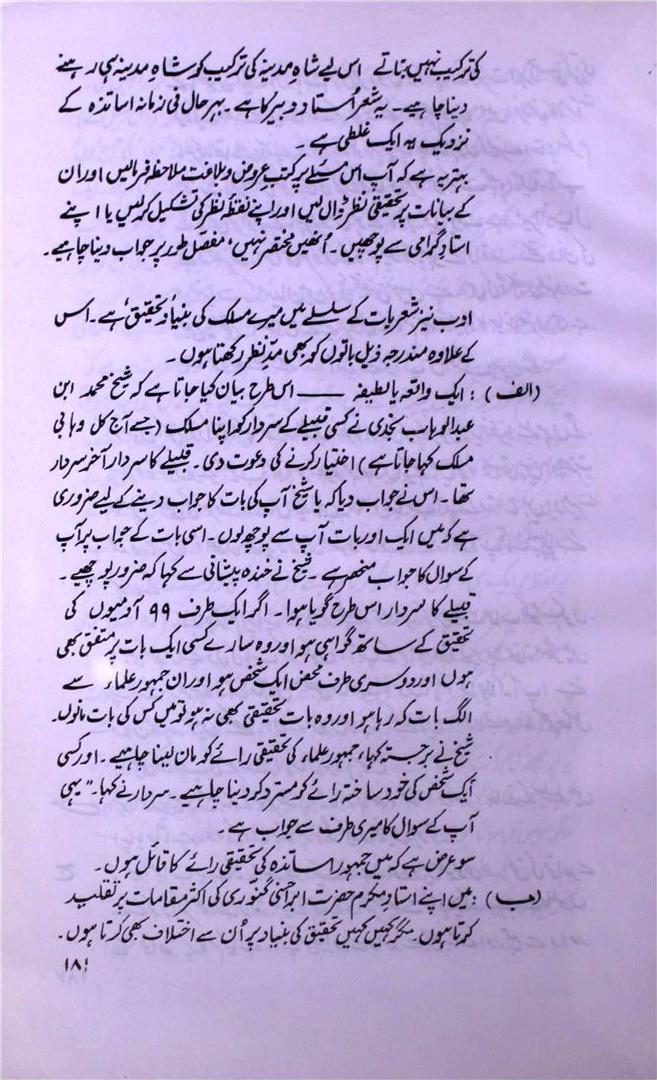 کی ترکیب نہیں بناتے اس لیے شاہ مدینہ کی ترکیب کو شاہِ مدینہ ہی رہنے
دینا چاہیے۔ یہ شعر اُستاد دبیر کا ہے۔ بہر حال فی زمانہ اساتذہ کے
نزدیک یہ ایک غلطی ہے۔
بہتر یہ ہے کہ آپ اس مسئلے پر کتب عروض و بلاغت ملاحظہ فرمالیں اور ان
کے بیانات پر تحقیقی نظر ڈال لیں اور اپنے نقطۂ نظر کی تشکیل کر لیں یا اپنے
استادِ گرامی سے پوچھیں۔ اُنھیں مختصر نہیں، مفصل طور پر جواب دینا چاہیے۔
ادب نیز شعریات کے سلسلے میں میرے مسلک کی بنیاد 'تحقیق' ہے۔ اس
کے علاوہ مندرجہ ذیل باتوں کو بھی مدِّ نظر رکھتا ہوں۔
(الف) : ایک واقعہ یا لطیفہ ــــــ اس طرح بیان کیا جاتا ہے کہ شیخ محمد ابن
عبدالوہاب نجدی نے کسی قبیلے کے سردار کو اپنا مسلک (جسے آج کل وہابی
مسلک کہا جاتا ہے) اختیار کرنے کی دعوت دی۔ قبیلے کا سردار آخر سردار
تھا۔ اس نے جواب دیا کہ یا شیخ آپ کی بات کا جواب دینے کے لیے ضروری
ہے کہ میں ایک اور بات آپ سے پوچھ لوں۔ اسی بات کے جواب پر آپ
کے سوال کا جواب منحصر ہے۔ شیخ نے خندہ پیشانی سے کہا کہ ضرور پوچھیے۔
قبیلے کا سردار اس طرح گویا ہوا۔ اگر ایک طرف ۹۹ آدمیوں کی
تحقیق کے ساتھ گواہی ہو اور وہ سارے کسی ایک بات پر متفق بھی
ہوں اور دوسری طرف محض ایک شخص ہو اور ان جمہور علماء سے
الگ بات کہ رہا ہو اور وہ بات تحقیقی بھی نہ ہو تو میں کس کی بات مانوں۔
شیخ نے برجستہ کہا، جمہور علماء کی تحقیقی رائے کو مان لینا چاہیے۔ اور کسی
ایک شخص کی خود ساختہ رائے کو مسترد کر دینا چاہیے۔ سردار نے کہا۔" یہی
آپ کے سوال کا میری طرف سے جواب ہے۔
سو عرض ہے کہ میں جمہور اساتذہ کی تحقیقی رائے کا قائل ہوں۔
(ب) : میں اپنے استادِ مکرم حضرت ابر احسنی گنوری کی اکثر مقامات پر تقلید
کرتا ہوں۔ مگر کہیں کہیں تحقیق کی بنیاد پر اُن سے اختلاف بھی کرتا ہوں۔
۱۸۱